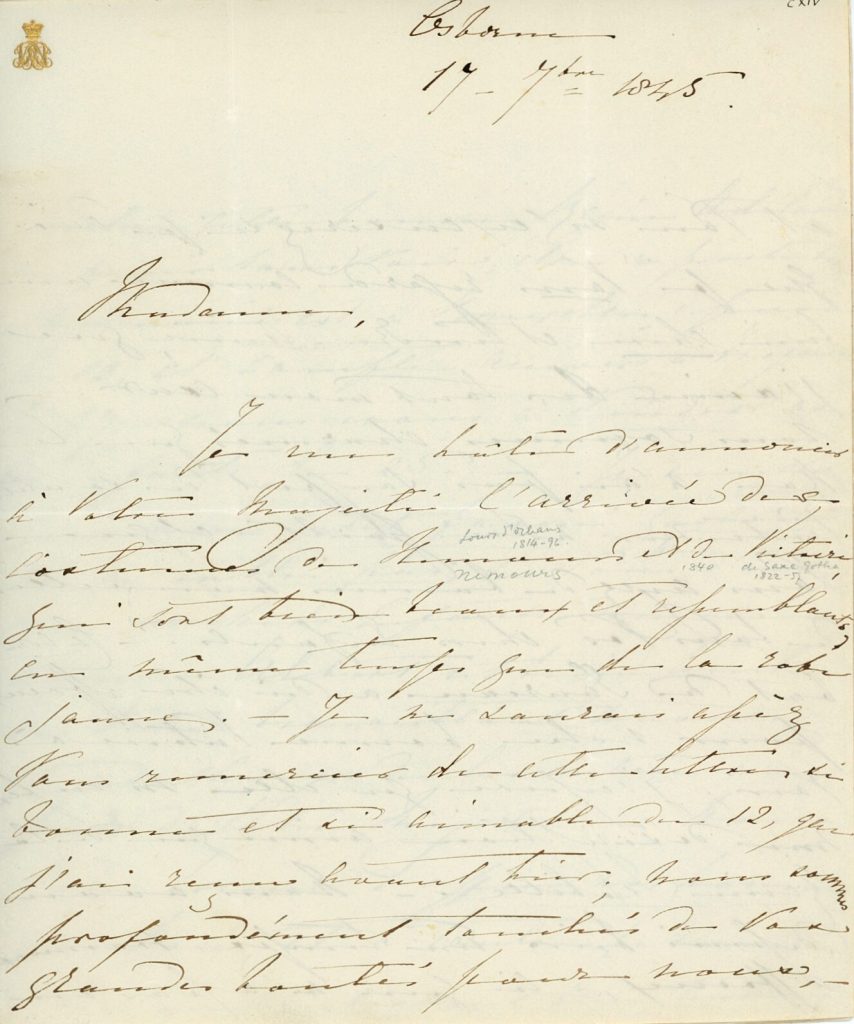 CXIV
Osborne
17 – 7bre 1845.
Madame,
Je me hâte d'annoncer
à Votre Majesté l'arrivée des
Louis d'Orléans
1814-96
costumes de Nemours et de Victoire,
nemours
1840
de Saxe Gotha
1822-57
qui sont bien beaux et ressemblants,
en même temps que de la robe
jaune. – Je ne saurais assez
Vous remercier de cette lettre si
bonne et si aimable du 12, que
j'ai reçue avant hier; nous sommes
profondément touchés de Vos
grandes bontés pour nous, –